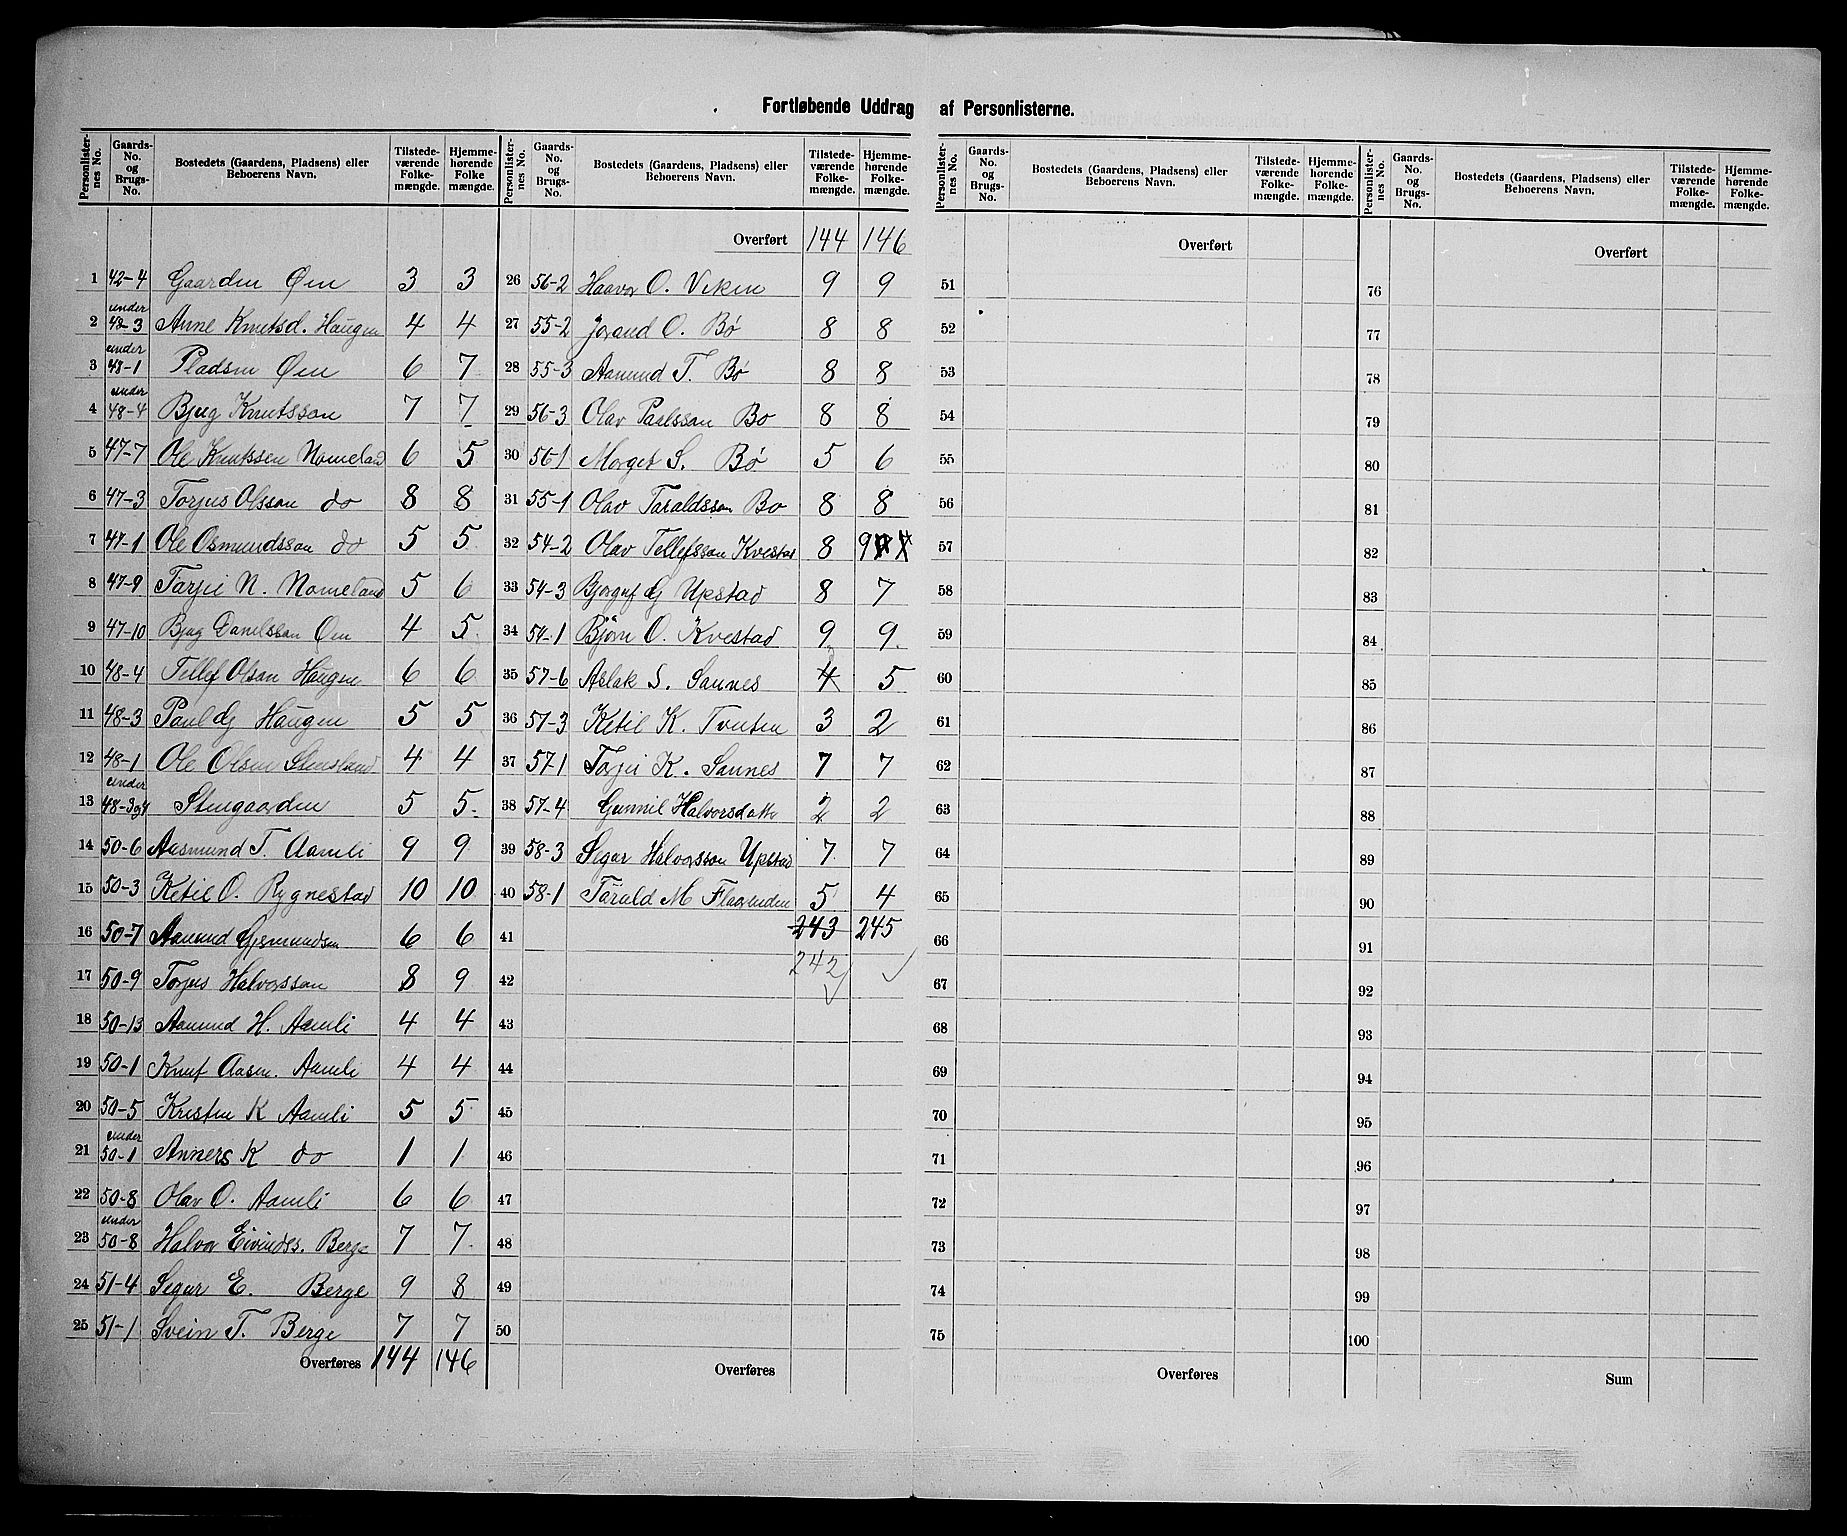 Fortløbende Uddrag af Personlisterne.
Personlisternes No. Gaards-No. og Brugs-No. Bostedets (Gaardens, Pladsens) eller Beboerens Navn. Tilstedeværende Folkemængde. Hjemmehørende Folkemængde.
Personlisternes No. Gaards-No. og Brugs-No. Bostedets (Gaardens, Pladsens) eller Beboerens Navn. Tilstedeværende Folkemængde. Hjemmehørende Folkemængde.
Personlisternes No. Gaards-No. og Brugs-No. Bostedets (Gaardens, Pladsens) eller Beboerens Navn. Tilstedeværende Folkemængde. Hjemmehørende Folkemængde.
Personlisternes No. Gaards-No. og Brugs-No. Bostedets (Gaardens, Pladsens) eller Beboerens Navn. Tilstedeværende Folkemængde. Hjemmehørende Folkemængde.
1 42-4 Gaarden Øen 3 3
2 under 48-3 Anne Knutsd. Haugen 4 4
3 under 48-1 Pladsen Øen 6 7
4 under 48-4 Bjug Knutsson 7 7
5 47-7 Ole Knutssen Nomeland 6 5
6 47-3 Torjus Olsson do 8 8
7 47-1 Ole Osmundsson do 5 5
8 47-9 Tarjei N. Nomeland 5 6
9 47-10 Bjug Danielsson Øen 4 5
10 48-4 Tellef Olson Haugen 6 6
11 48-3 Paul G Haugen 5 5
12 48-1 Ole Olsen Stensland 4 4
13 under 48-3og4 Stengaarden 5 5
14 50-6 Aasmund T. Aamli 9 9
15 50-3 Ketil O. Rygnestad 10 10
16 50-7 Aamund Gjermundsen 6 6
17 50-9 Torjus Halvorsson 8 9
18 50-13 Aamund H. Aamli 4 4
19 50-1 Knut Aasm. Aamli 4 4
20 50-5 Kristen K Aamli 5 5
21 under 50-1 Anners K do 1 1
22 50-8 Olav O. Aamli 6 6
23 under 50-8 Halvor Eivindss. Berge 7 7
24 51-4 Sigur E. Berge 9 8
25 51-1 Svein T. Berge 7 7
Overføres 144 146
Overført 144 146
26 56-2 Haavor O. Viken 9 9
27 55-2 Jorand O. Bø 8 8
28 55-3 Aamund T. Bø 8 8
29 56-3 Olav Paalsson Bø 8 8
30 56-1 Morget S. Bø 5 6
31 55-1 Olav Taraldsson Bø 8 8
32 54-2 Olav Tellefsson Kvestad 8 9
33 54-3 Bjorguf G Upstad 8 7
34 54-1 Bjørn O. Kvestad 9 9
35 57-6 Aslak S. Sannes 4 3 5
36 57-3 Ketil K. Tveiten 3 2
37 57-1 Torjei K. Sannes 7 7
38 57-4 Gunnil Halvorsdatter 2 2
39 58-3 Sigur Halvorsson Upstad 7 7
40 58-1 Tarald M. 5 4
41 243 245
42 242
43
44
45
46
47
48
49
50
Overføres
Overført
51
52
53
54
55
56
57
58
59
60
61
62
63
64
65
66
67
68
69
70
71
72
73
74
75
Overføres
Overført
76
77
78
79
80
81
82
83
84
85
86
87
88
89
90
91
92
93
94
95
96
97
98
99
100
Sum